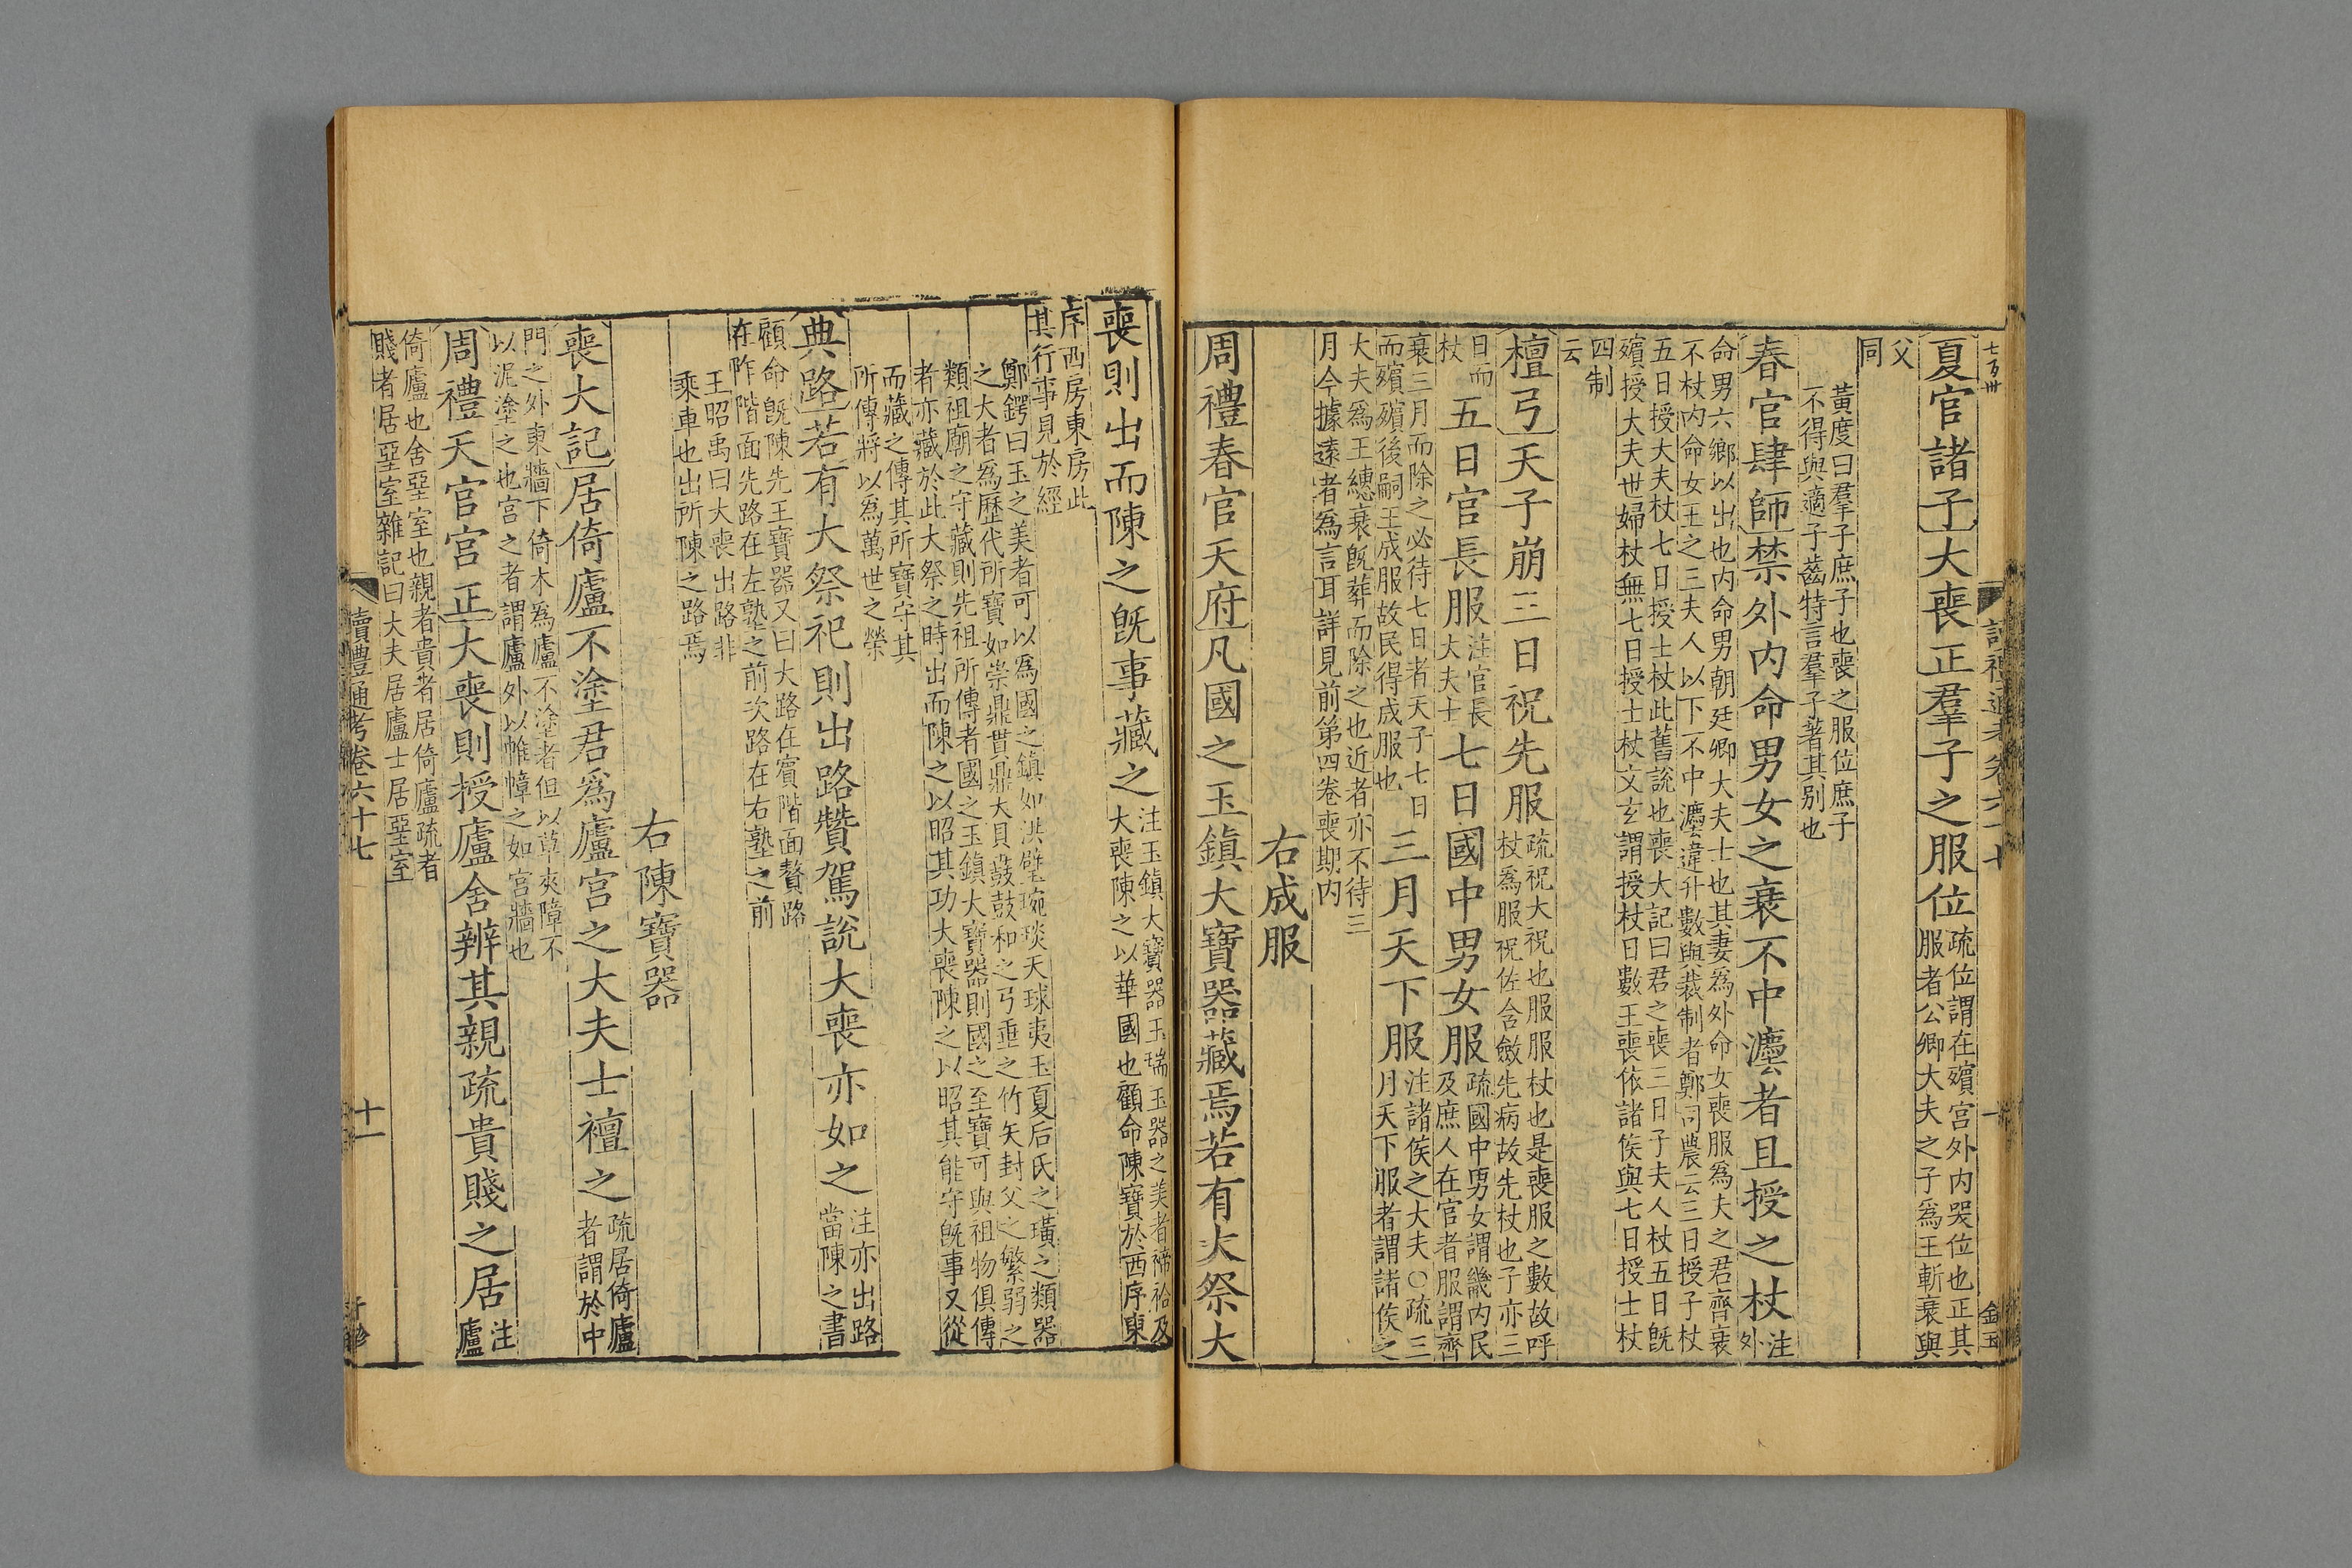 夏官諸子大喪正羣子之服位疏位謂在殯宮外内哭位也正其
服者公卿大夫之子爲王斬衰與
父
同
黃度曰羣子庶子也喪之服位庶子
不得與適子齒特言羣子著其别也
春官肆師禁外内命男女之衰不中灋者且授之杖注
外
命男六鄉以出也内命男朝廷卿大夫士也其妻爲外命女喪服爲夫之君齊衰
不杖内命女王之三夫人以下不中灋違升數與裁制者鄭司農云三日授子杖
五日授大夫杖七日授士杖此舊說也喪大記曰君之喪三日子夫人杖五日旣
殯授大夫世婦杖無七日授士杖文玄謂授杖日數王喪依諸侯與七日授士杖
四制
云
檀弓天子崩三日祝先服疏祝大祝也服服杖也是喪服之數故呼
杖爲服祝佐含斂先病故先杖也子亦三
日而
杖
五日官長服注官長
大夫士
七日國中男女服疏國中男女謂畿内民
及庶人在官者服謂齊
衰三月而除之必待七日者天子七日
而殯殯後嗣王成服故民得成服也
三月天下服注諸侯之大夫○疏三
月天下服者謂諸侯之
大夫爲王繐衰旣葬而除之也近者亦不待三
月今據遠者爲言耳詳見前第四卷喪期内
右成服
周禮春官天府凡國之玉鎮大寶器藏焉若有大祭大
喪則出而陳之旣事藏之注玉鎮大寶器玉瑞玉器之美者禘祫及
大喪陳之以華國也顧命陳寶於西序東
序西房東房此
其行事見於經
鄭鍔曰玉之美者可以爲國之鎮如洪璧琬琰天球夷玉夏后氏之璜之類器
之大者爲歷代所寶如崇鼎貫鼎大貝鼖鼓和之弓垂之竹矢封父之繁弱之
類祖廟之守藏則先祖所傳者國之玉鎮大寶器則國之至寶可與祖物俱傳
者亦藏於此大祭之時出而陳之以昭其功大喪陳之以昭其能守旣事又從
而藏之傳其所寶守其
所傳將以爲萬世之榮
典路若有大祭祀則出路贊駕說大喪亦如之注亦出路
當陳之書
顧命旣陳先王寶器又曰大路在賓階面贅路
在阼階面先路在左塾之前次路在右塾之前
王昭禹曰大喪出路非
乘車也出所陳之路焉
右陳寶器
喪大記居倚廬不塗君爲廬宮之大夫士襢之疏居倚廬
者謂於中
門之外東牆下倚木爲廬不塗者但以草夾障不
以泥塗之也宮之者謂廬外以帷幛之如宮牆也
周禮天官宮正大喪則授廬舍辨其親疏貴賤之居注
廬
倚廬也舍堊室也親者貴者居倚廬疏者
賤者居堊室雜記曰大夫居廬士居堊室
讀禮通考卷六十七
十一